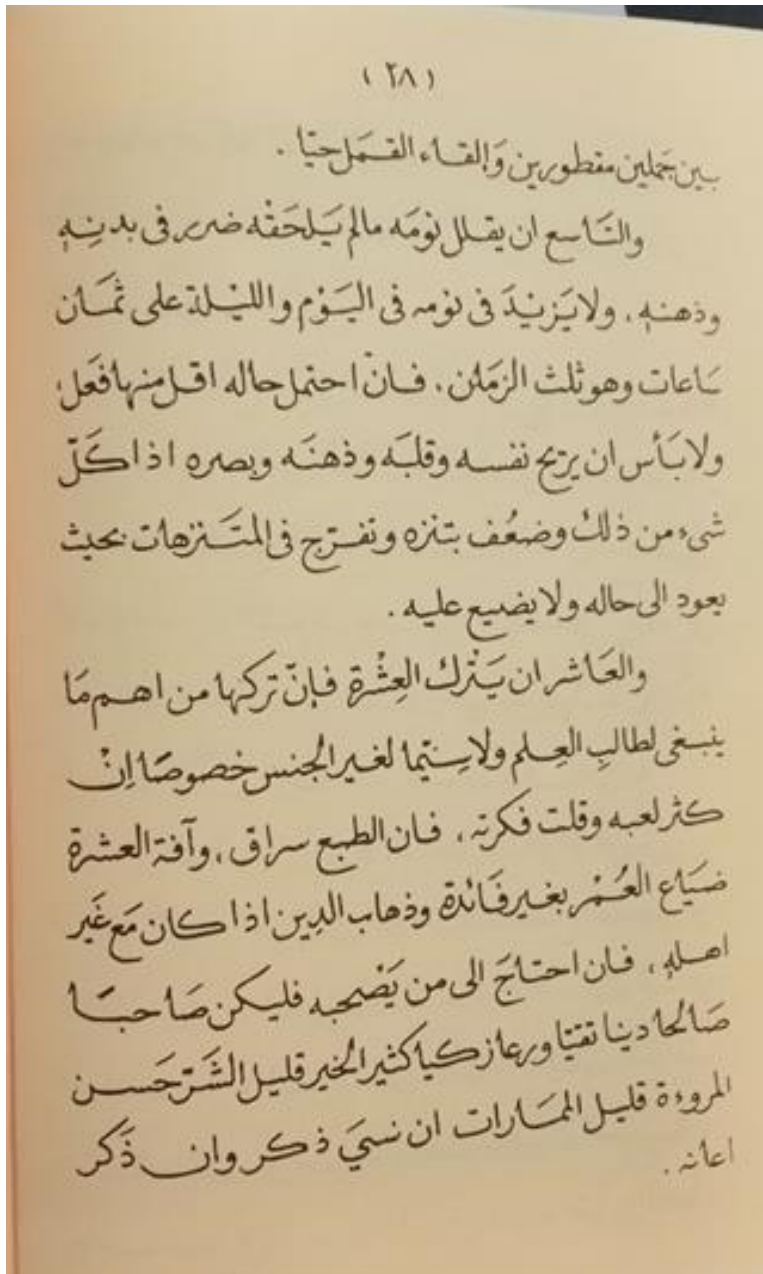 ( ٢٨ )
بين جَملين مقطورين وَإلقاء القمَل حيّا .
والتَاسع ان يقلل نومَه مالم يَلحَقْه ضرر فى بدنِهِ
وذهنهِ . ولا يَزيْدَ فى نومه فى اليَوْم والليْلة على ثمَان
سَاعات وهو ثلث الزمَان . فانْ احتمل حاله اقل منها فعَل ؛
ولا بَأس ان يريح نفسه وقلبَه وذهنَه وبصره اذا كَلّ
شىء من ذلك وضعُف بتنزه وتفرّج فى المتَنزهات بحيث
يعود الى حاله ولا يضيع عليه .
والعَاشر ان يَتْرك العِشْرة فإنّ تركها من اهم مَا
ينبغى لطالبِ العِلم ولا سِيّما لغير الجنس خصوصًا اِنْ
كثر لعبه وقلت فكرته . فان الطبع سراق ، وآفة العشرة
ضيَاع العُمْر بغير فَائدة وذهاب الدِين اذا كان مَع غَير
اهلهِ ، فان احتاجَ الى من يَصْحبه فليكن صَاحبًا
صَالحا دينا تقيّا ورعا زكيا كثير الخير قليل الشَرّ حَسن
المروءة قليل الممَارات ان نسيَ ذكر وان ذَكر
اعانه .